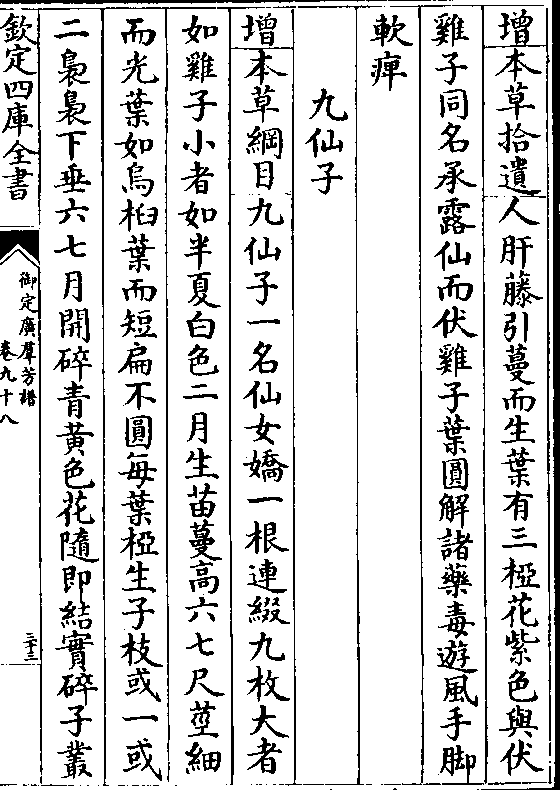 增本草拾遺人肝藤引蔓而生葉有三椏花紫色與伏
雞子同名承露仙而伏雞子葉圓解諸藥毒遊風手脚
軟痺
九仙子
增本草綱目九仙子一名仙女嬌一根連綴九枚大者
如雞子小者如半夏白色二月生苗蔓高六七尺莖細
而光葉如烏桕葉而短扁不圓每葉椏生子枝或一或
二裊裊下垂六七月開碎青黃色花隨即結實碎子叢
欽定四庫全書
御定廣羣芳譜
卷九十八
三十三